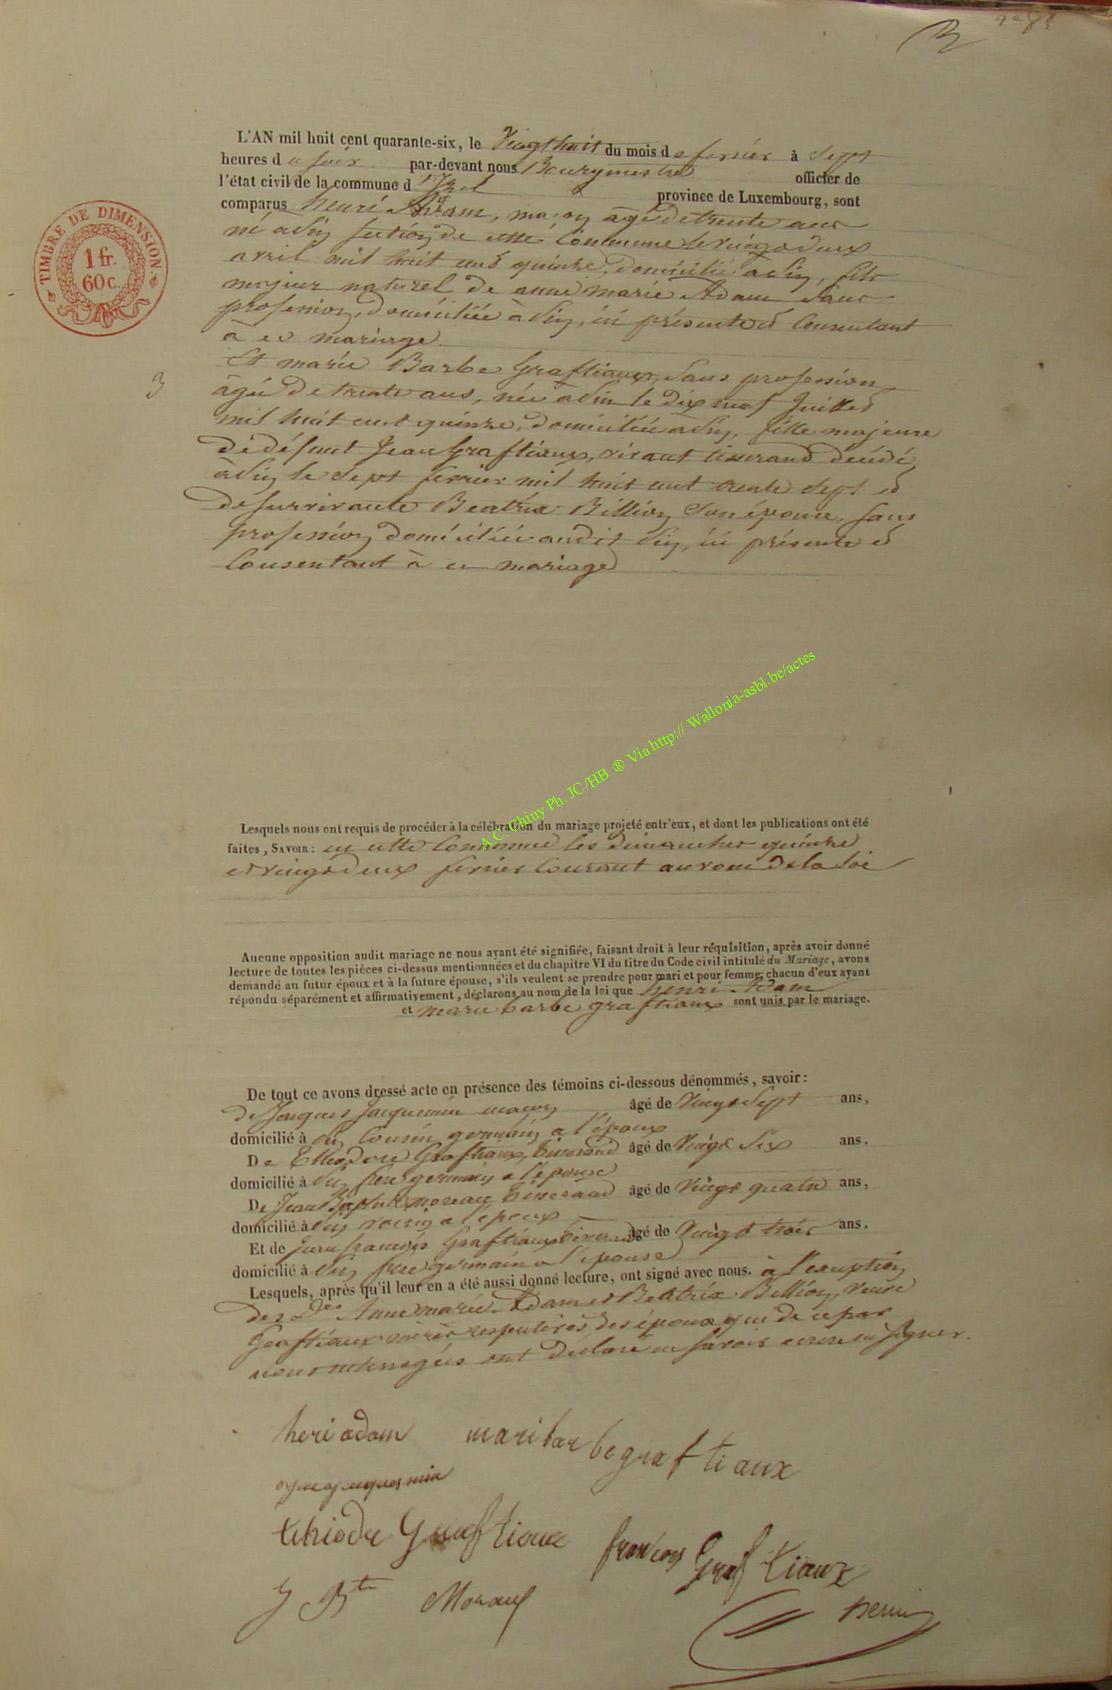 TIMBRE DE DIMENSION.
1 fr.
60 c.
3
L'AN mil huit cent quarante-six, le Vingt huit du mois de fevrier à Sept
heures du soir par-devant nous Bourgmestre officier de
l'état civil de la commune d'Izel province de Luxembourg, sont
comparus henri Adam, maçon âgé de trente ans
né a Pin section de cette Commune le vingt deux
avril mil huit cent quinze, domicilié a Pin, fils
majeur naturel de anne marie Adam Sans
profession, domiciliée à Pin, ici présente et Consentant
à ce mariage
Et marie Barbe Graftiaux, Sans profession
âgée de trente ans, née a Pin le dix neuf Juillet
mil huit cent quinze, domiciliée a Pin, fille majeure
de défunt Jean Graftiaux, vivant tisserand décédé
à Pin le Sept fevrier mil huit cent trente Sept et
de survivante Beatrix Billion Son épouse, Sans
profession domiciliée audit Pin, ici présente et
Consentant à ce mariage
A.C. Chiny Ph. JC/HB ® Via http:// Wallonia-asbl.be/actes
Lesquels nous ont requis de procéder à la célébration du mariage projeté entr'eux, et dont les publications ont été
faites, SAVOIR : en cette Commune les dimanches quinze
et vingt deux fevrier Courant au vœu de la loi
Aucune opposition audit mariage ne nous ayant été signifiée, faisant droit à leur réquisition, après avoir donné
lecture de toutes les pièces ci-dessus mentionnées et du chapitre VI du titre du Code civil intitulé du Mariage, avons
demandé au futur époux et à la future épouse, s'ils veulent se prendre pour mari et pour femme, chacun d'eux ayant
répondu séparément et affirmativement, déclarons au nom de la loi que henri Adam
et marie barbe graftiaux sont unis par le mariage.
De tout ce avons dressé acte en présence des témoins ci-dessous dénommés, savoir :
de Jacques Jacquemin maçon âgé de Vingt Sept ans,
domicilié à Pin Cousin germain a l'époux
De Theodore Graftiaux, tisserand âgé de Vingt Six ans.
domicilié à Pin frere germain a l'épouse
De Jean Baptiste moreau tisserand âgé de Vingt quatre ans,
domicilié à Pin voisin a l'epoux
Et de Jean françois Graftiaux tisserand âgé de Vingt trois ans.
domicilié à Pin frere germain a l'epouse
Lesquels, après qu'il leur en a été aussi donné lecture, ont signé avec nous. à l'exception
des Des Anne marie Adam et Beatrix Billion, veuve
Graftiaux mères respectives des époux qui de ce par
nous interrogées ont déclaré ne savoir ecrire ni signer.
heri adam maribarbe graftiaux
thiodre Graftiaux françois Graftiaux
J Bte Moraux